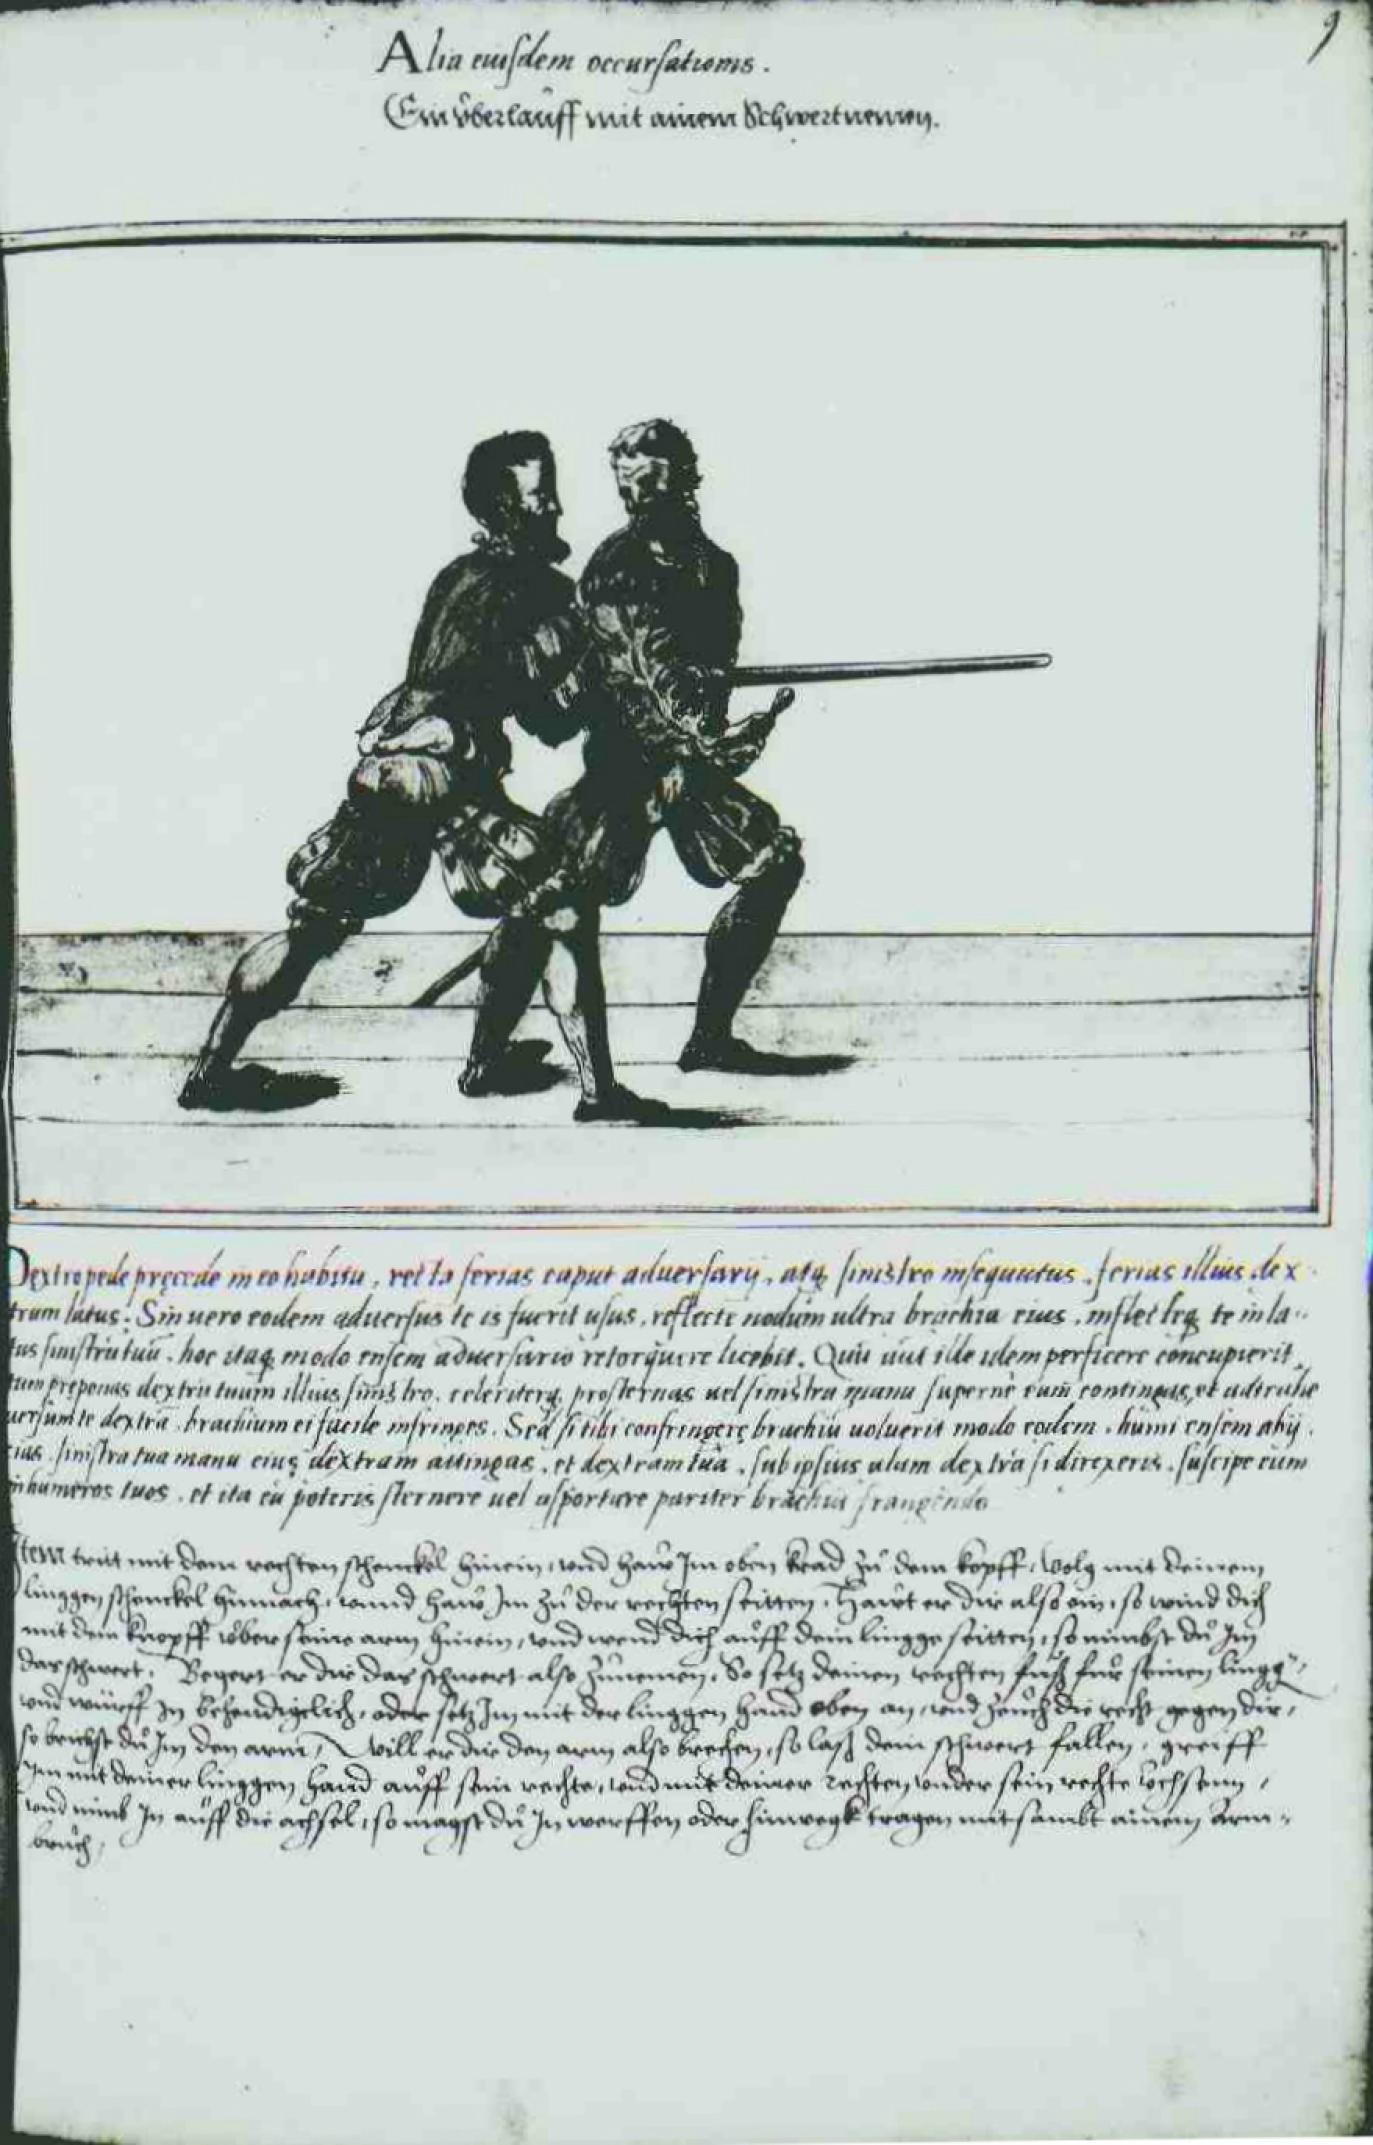 9
Alia eiusdem occursationis.
Ein v̊berlauff mit ainem Schwertnemen.
Dextro pede pręcede in eo habitu, recta ferias caput aduersarij, atq; sinistro insequutus, ferias illius dex
trum latus. Sin uero eodem aduersus te is fuerit usus, reflecte nodum ultra brachia eius, inflecteq; te in la-
tus sinistrũ tuũ, hoc itaq; modo ensem aduersario retorquere licebit. Quũ ille idem perficere concupierit,
tum prẹponas dextrũ tuum illius sinistro, celeriterq; prosternas uel sinistra manu superne eum contingas, et adtrahe
uersum te dextrã, brachium ei facile infringes. Sed si tibi confringere brachiũ uoluerit modo eodem, humi ensem abij
cias, sinistra tua manu eius dextram attingas, et dextram tuã, sub ipsius alam dextrã si direxeris, suscipe eum
in humeros tuos, et ita eũ poteris sternere uel asportare pariter brachia frangendo
Item tritt mit dem rechten schenckel hinein, vnd haw Im oben krad zů dem kopff, volg mit deinem
linggen schenckel hinnach, vnnd haw Im zů der rechten seitten, Hawt er dir also ein, so wind dich
mit dem knopff v̊ber seine arm hinein, vnd wend dich auff dein lingge seitten, so nimbst dů Im
das schwert. Begert er dir das schwert also zunemen, So setz deinen rechten fuß fur seinen lingg-
vnd wurff In behendigclich, oder setz Im mit der linggen hand oben an, vnd zeuch die recht gegen dir,
so brichst dů Im den arm, Will er dir den arm also brechen, so laß dein schwert fallen, greiff
Im mit deiner linggen hand auff sein rechte, vnd mit deiner rechten vnder sein rechte vchsenn,
vnd nimb In auff die achsel, so magst dů In werffen oder hinwegk tragen mit sambt ainem arm-
bruch,